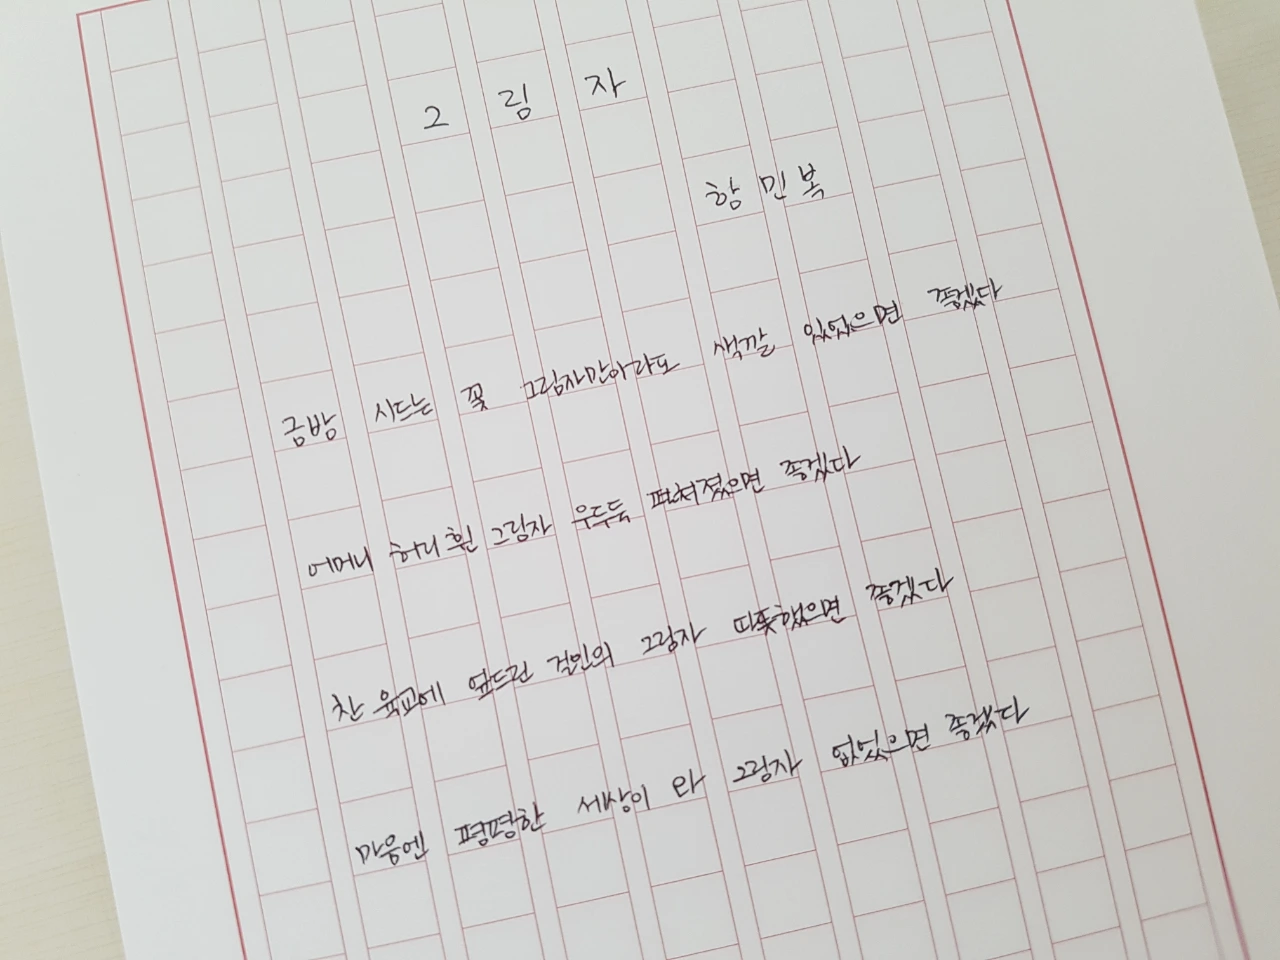 그림자
함민복
금방 시드는 꽃 그림자만이라도 색깔 있었으면 좋겠다
어머니 허리 휜 그림자 우두둑 펴져졌으면 좋겠다
찬 육교에 엎드린 걸인의 그림자 따뜻했으면 좋겠다
마음엔 평평한 세상이 와 그림자 없었으면 좋겠다